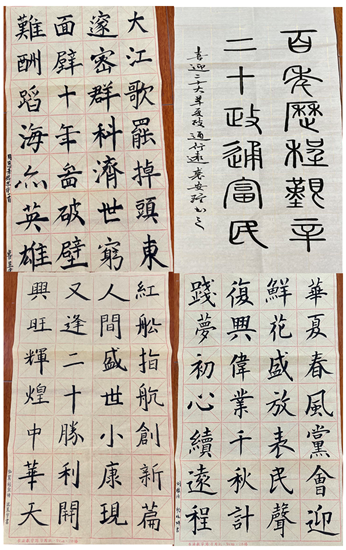 大江歌罷掉頭東
邃密群科濟世窮
面壁十年啚破壁
難酬蹈海亦英雄
百年歷程艱辛
二十政通富民
喜迎二十大
紅船指航創新篇
人間盛世小康現
又逢二十勝利開
興旺輝煌中華天
華夏春風黨會迎
鮮花盛放表民聲
復興偉業千秋計
踐夢初心續遠程